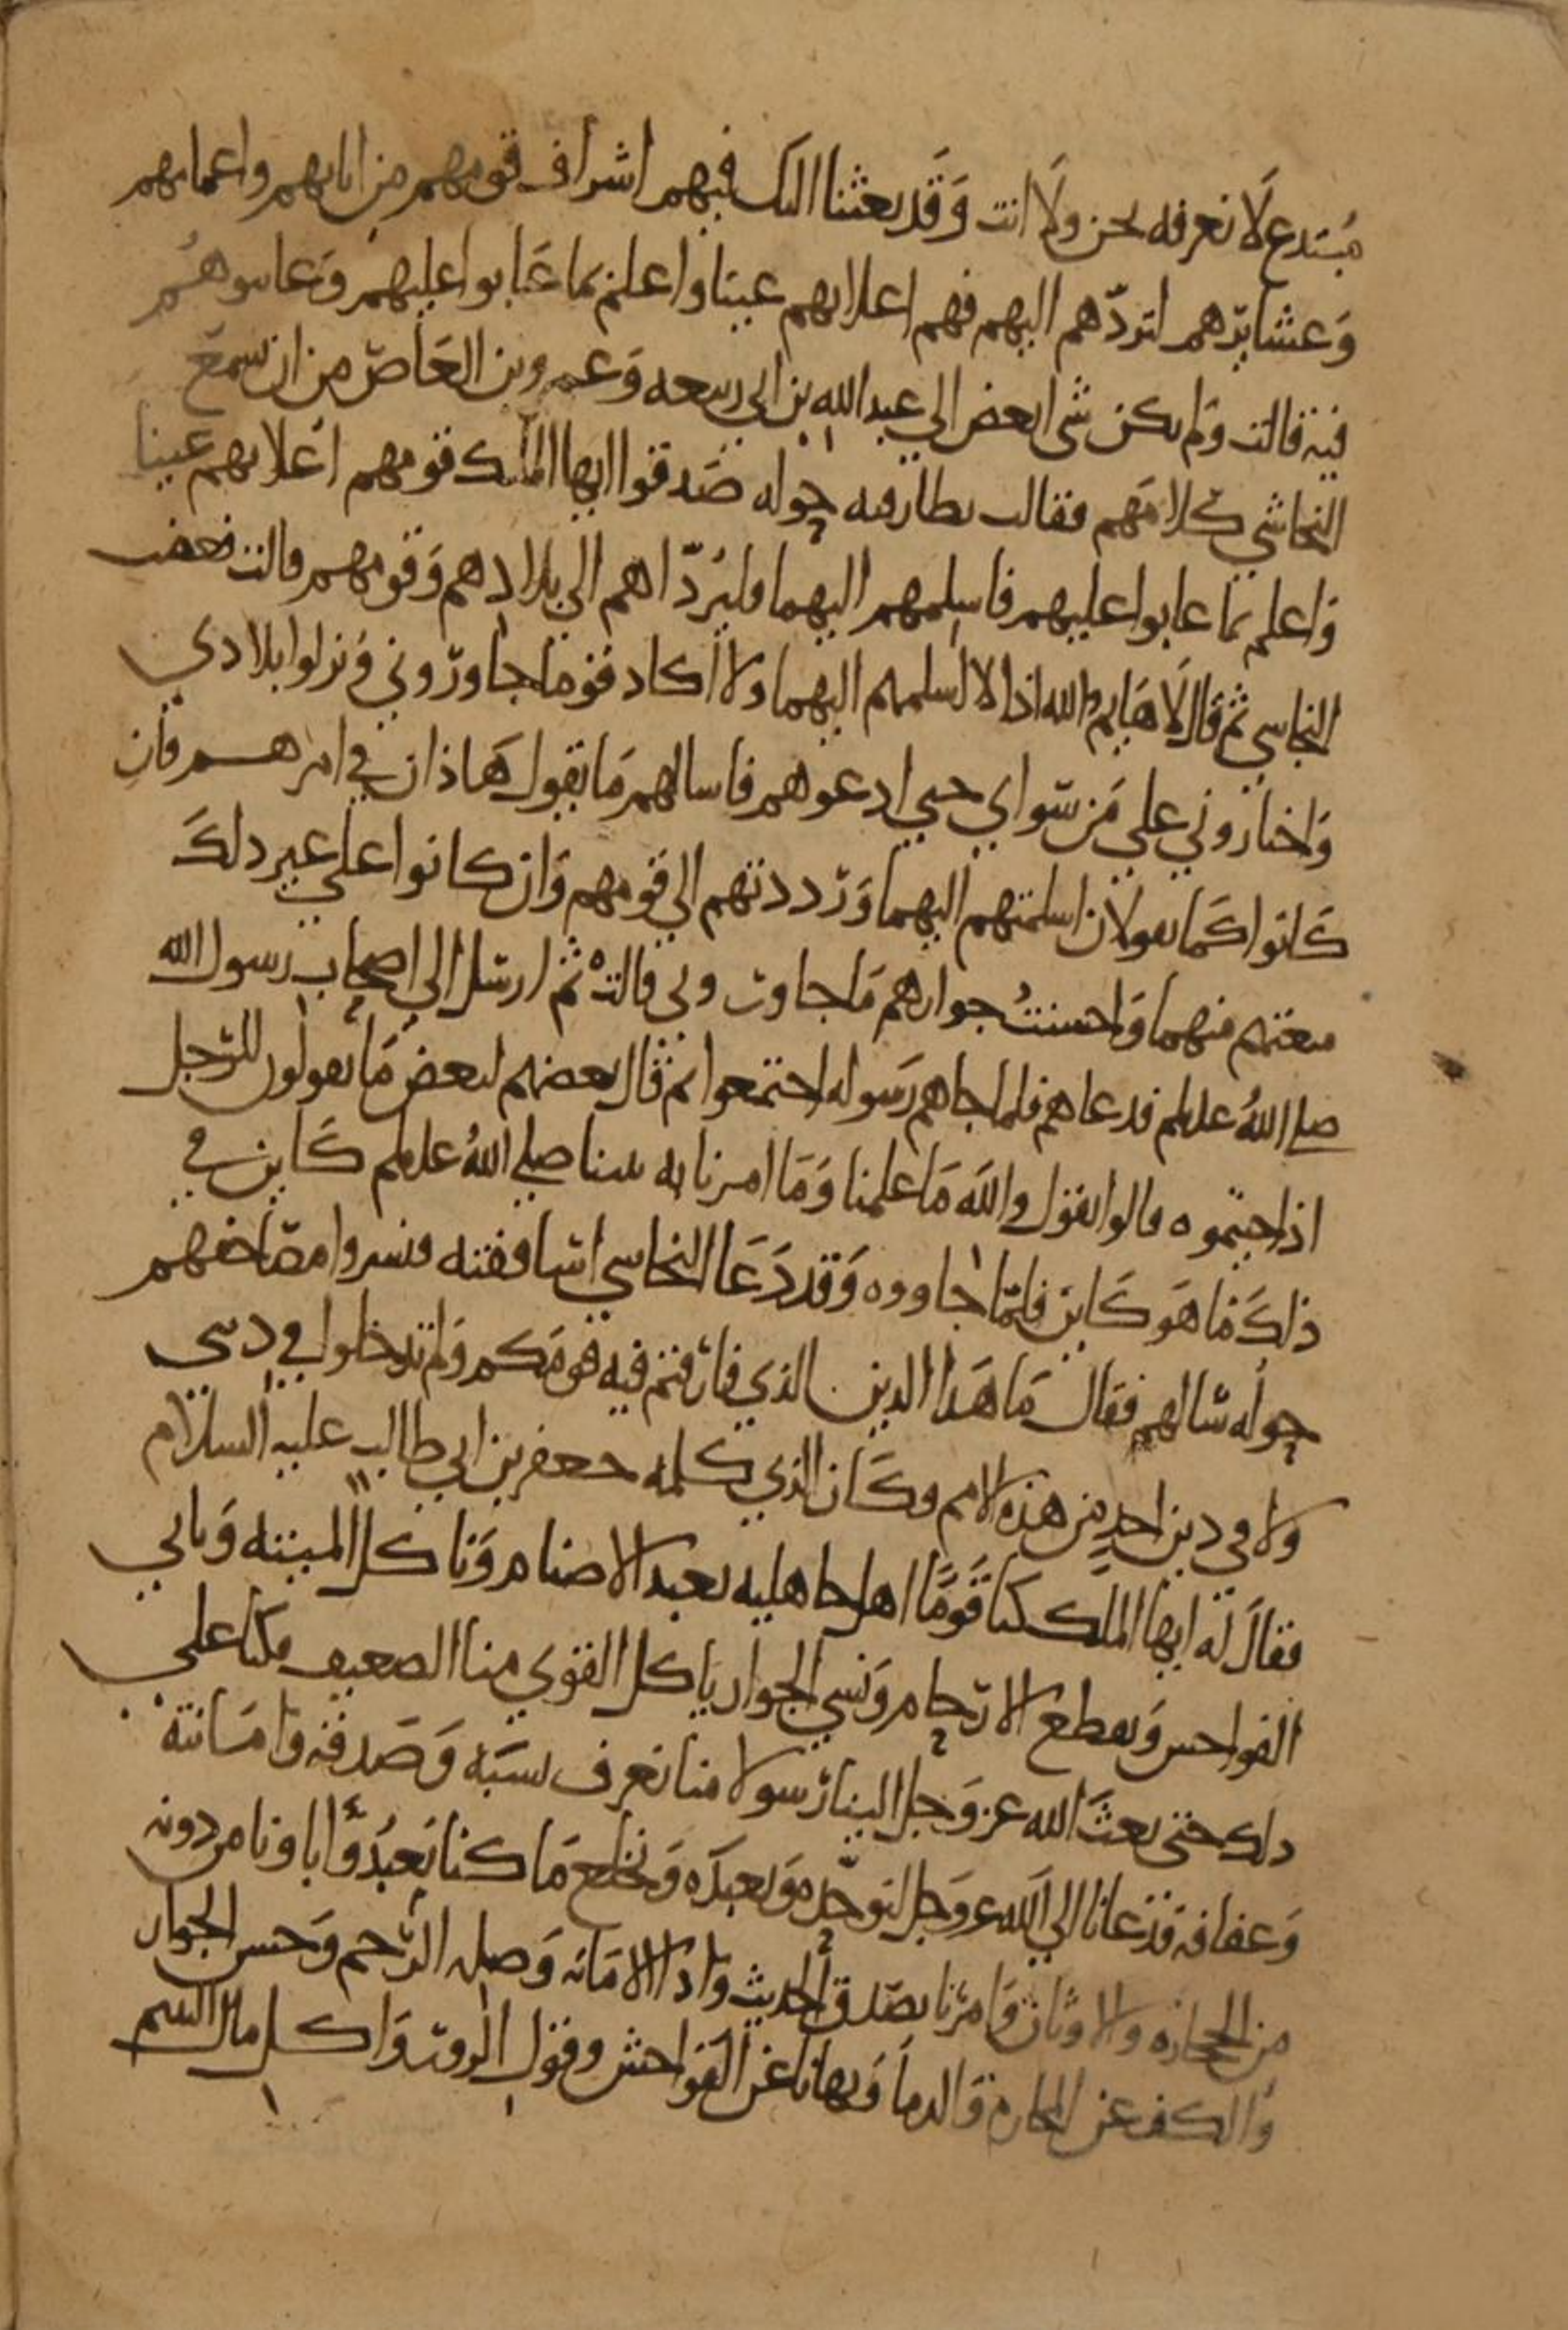 مبتدع لا نعرفه نحن ولا انت وَقد بعثنا اليك فيهم اشراف قومهم من ابايهم واعمامهم
وَعشايرهم لتردّهم اليهم فهم اعلا بهم عينا واعلم بما عَابوا عليهم وَعاتبوهُم
فيه قالت ولم يكن شي ابغض الي عبد الله بن ابي ربيعه وَعمرو بن العَاصّ من ان يسمعَ
النجاشي كلامَهم فقالت بطارقته حوله صَدقوا ايها الملك قومهم اعلا بهم عينا
وَاعلم بما عابوا عليهم فاسلمهم اليهما فليردّاهم الي بلادهم وَقومهم قالت فغضب
النجاشي ثم قال لَا هَا ايم الله اذا لا اسلمهم اليهما ولا اكاد قومًا جاوروني وَنزلوا بلادي
وَاختاروني علي مَن سوَاي حتي ادعوهم فاسالهم مَا يقول هَاذان في امرهم فان
كَانوا كَما يقولان اسلمتهم اليهما وَرددتهم الي قومهم وَان كانوا علي غير ذلكَ
منعتهم منهما وَاحسنتُ جوارهم مَا جاوروني قالت ثم ارسل الي اصحاب رسول الله
صلى اللهُ عليه وسلم فدعاهم فلما جاهم رَسوله اجتمعوا ثم قال بعضهم لبعض مَا تقولون للرّجل
اذا جيتموه قالوا نقول والله مَا علمنا وَمَا امرنا به نبينا صلي اللهُ عليه وسلم كَاين في
ذلكَ مَا هوَ كَاين فلمّا جاووه وَقد دَعَا النجاشي اساقفته فنشروا مصَاحفهم
حوله سَالهم فقال مَا هَذا الدين الذي فارقتم فيه قومَكم وَلم تدخلوا في ديني
ولا في دين احدٍ من هذه الامم وكَان الذي كلمه جعفر بن ابي طالب عليه السلام
فقالَ له ايها الملك كنا قَومًا اهل جاهليه نعبد الاصنام وَناكل الميتة وَناتي
الفواحش وَنقطع الارحام وَنسي الجوار ياكل القوي منا الضعيف فكنا علي
ذلك حتى بعثَ الله عز وَجل الينا رسولا منا نعرف نسبَه وَصَدقه وَامَانته
وَعفافه فدعانا الي الله عز وَجل لنوحّده وَنعبدَه وَنخلع مَا كنا نعبدُ وَاباونا من دونه
من الحجاره والاوثان وَامرَنا بصدق الحديث وَاداء الامَانه وَصله الرّحم وَحسن الجوار
وَالكف عن المحارم وَالدما وَنهانا عن الفوَاحش وقول الزور وَاكل مال اليتيم